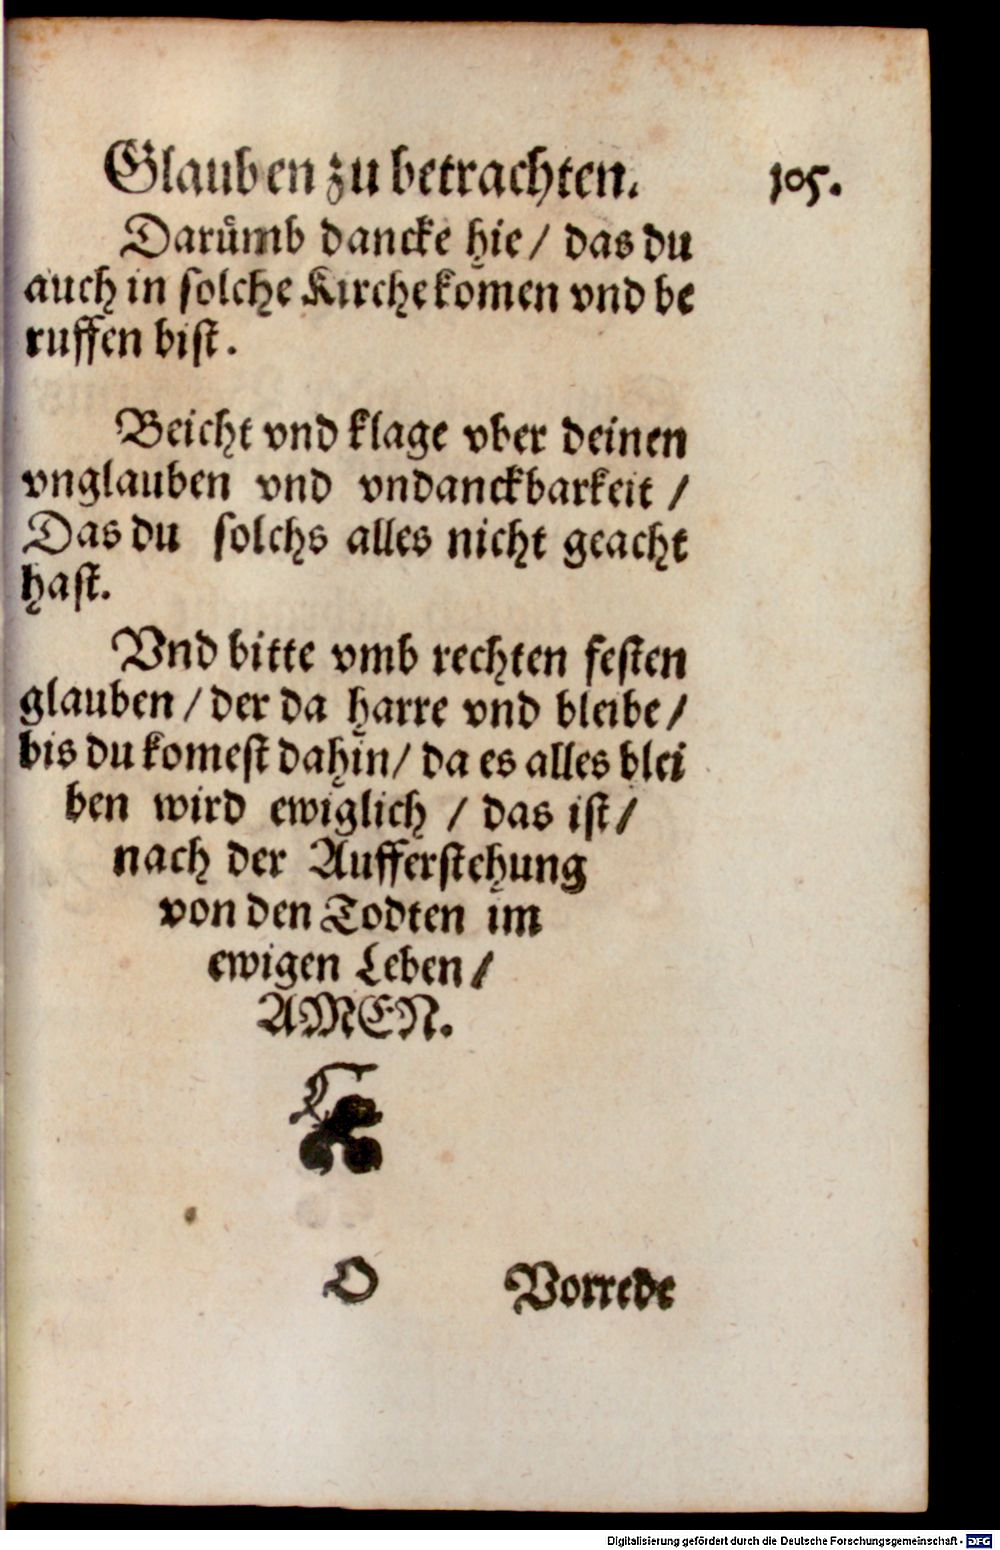 Glauben zu betrachten. 105.
Darůmb dancke hie / das du
auch in solche Kirche komen vnd be
ruffen bist.
Beicht vnd klage vber deinen
vnglauben vnd vndanckbarkeit /
Das du solchs alles nicht geacht
hast.
Vnd bitte vmb rechten festen
glauben / der da harre vnd bleibe /
bis du komest dahin / da es alles blei
ben wird ewiglich / das ist /
nach der Aufferstehung
von den Todten im
ewigen Leben /
AMEN.
O Vorrede
Digitalisierung gefördert durch die Deutsche Forschungsgemeinschaft - DFG